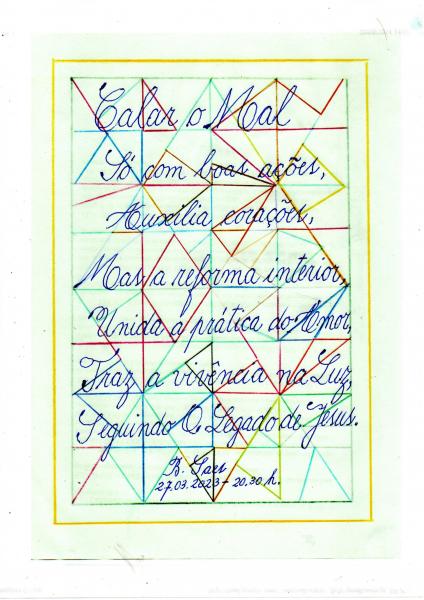 Calar o Mal
Só com boas ações,
Auxilia corações,
Mas a reforma interior,
Unida á prática do Amor,
Traz a vivência na Luz,
Seguindo O Legado de Jesus.
B.
27.03.2023 - 20.30 h.